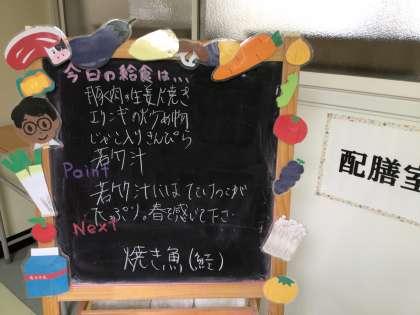 今日の給食は、、、
豚肉の生姜焼き
エリンギの炒め物
じゃこ入りきんぴら
若竹汁
Point
若竹汁にはたけのこが
たっぷり。春を感じて下さい
Next
焼き魚(鮭)
配膳室